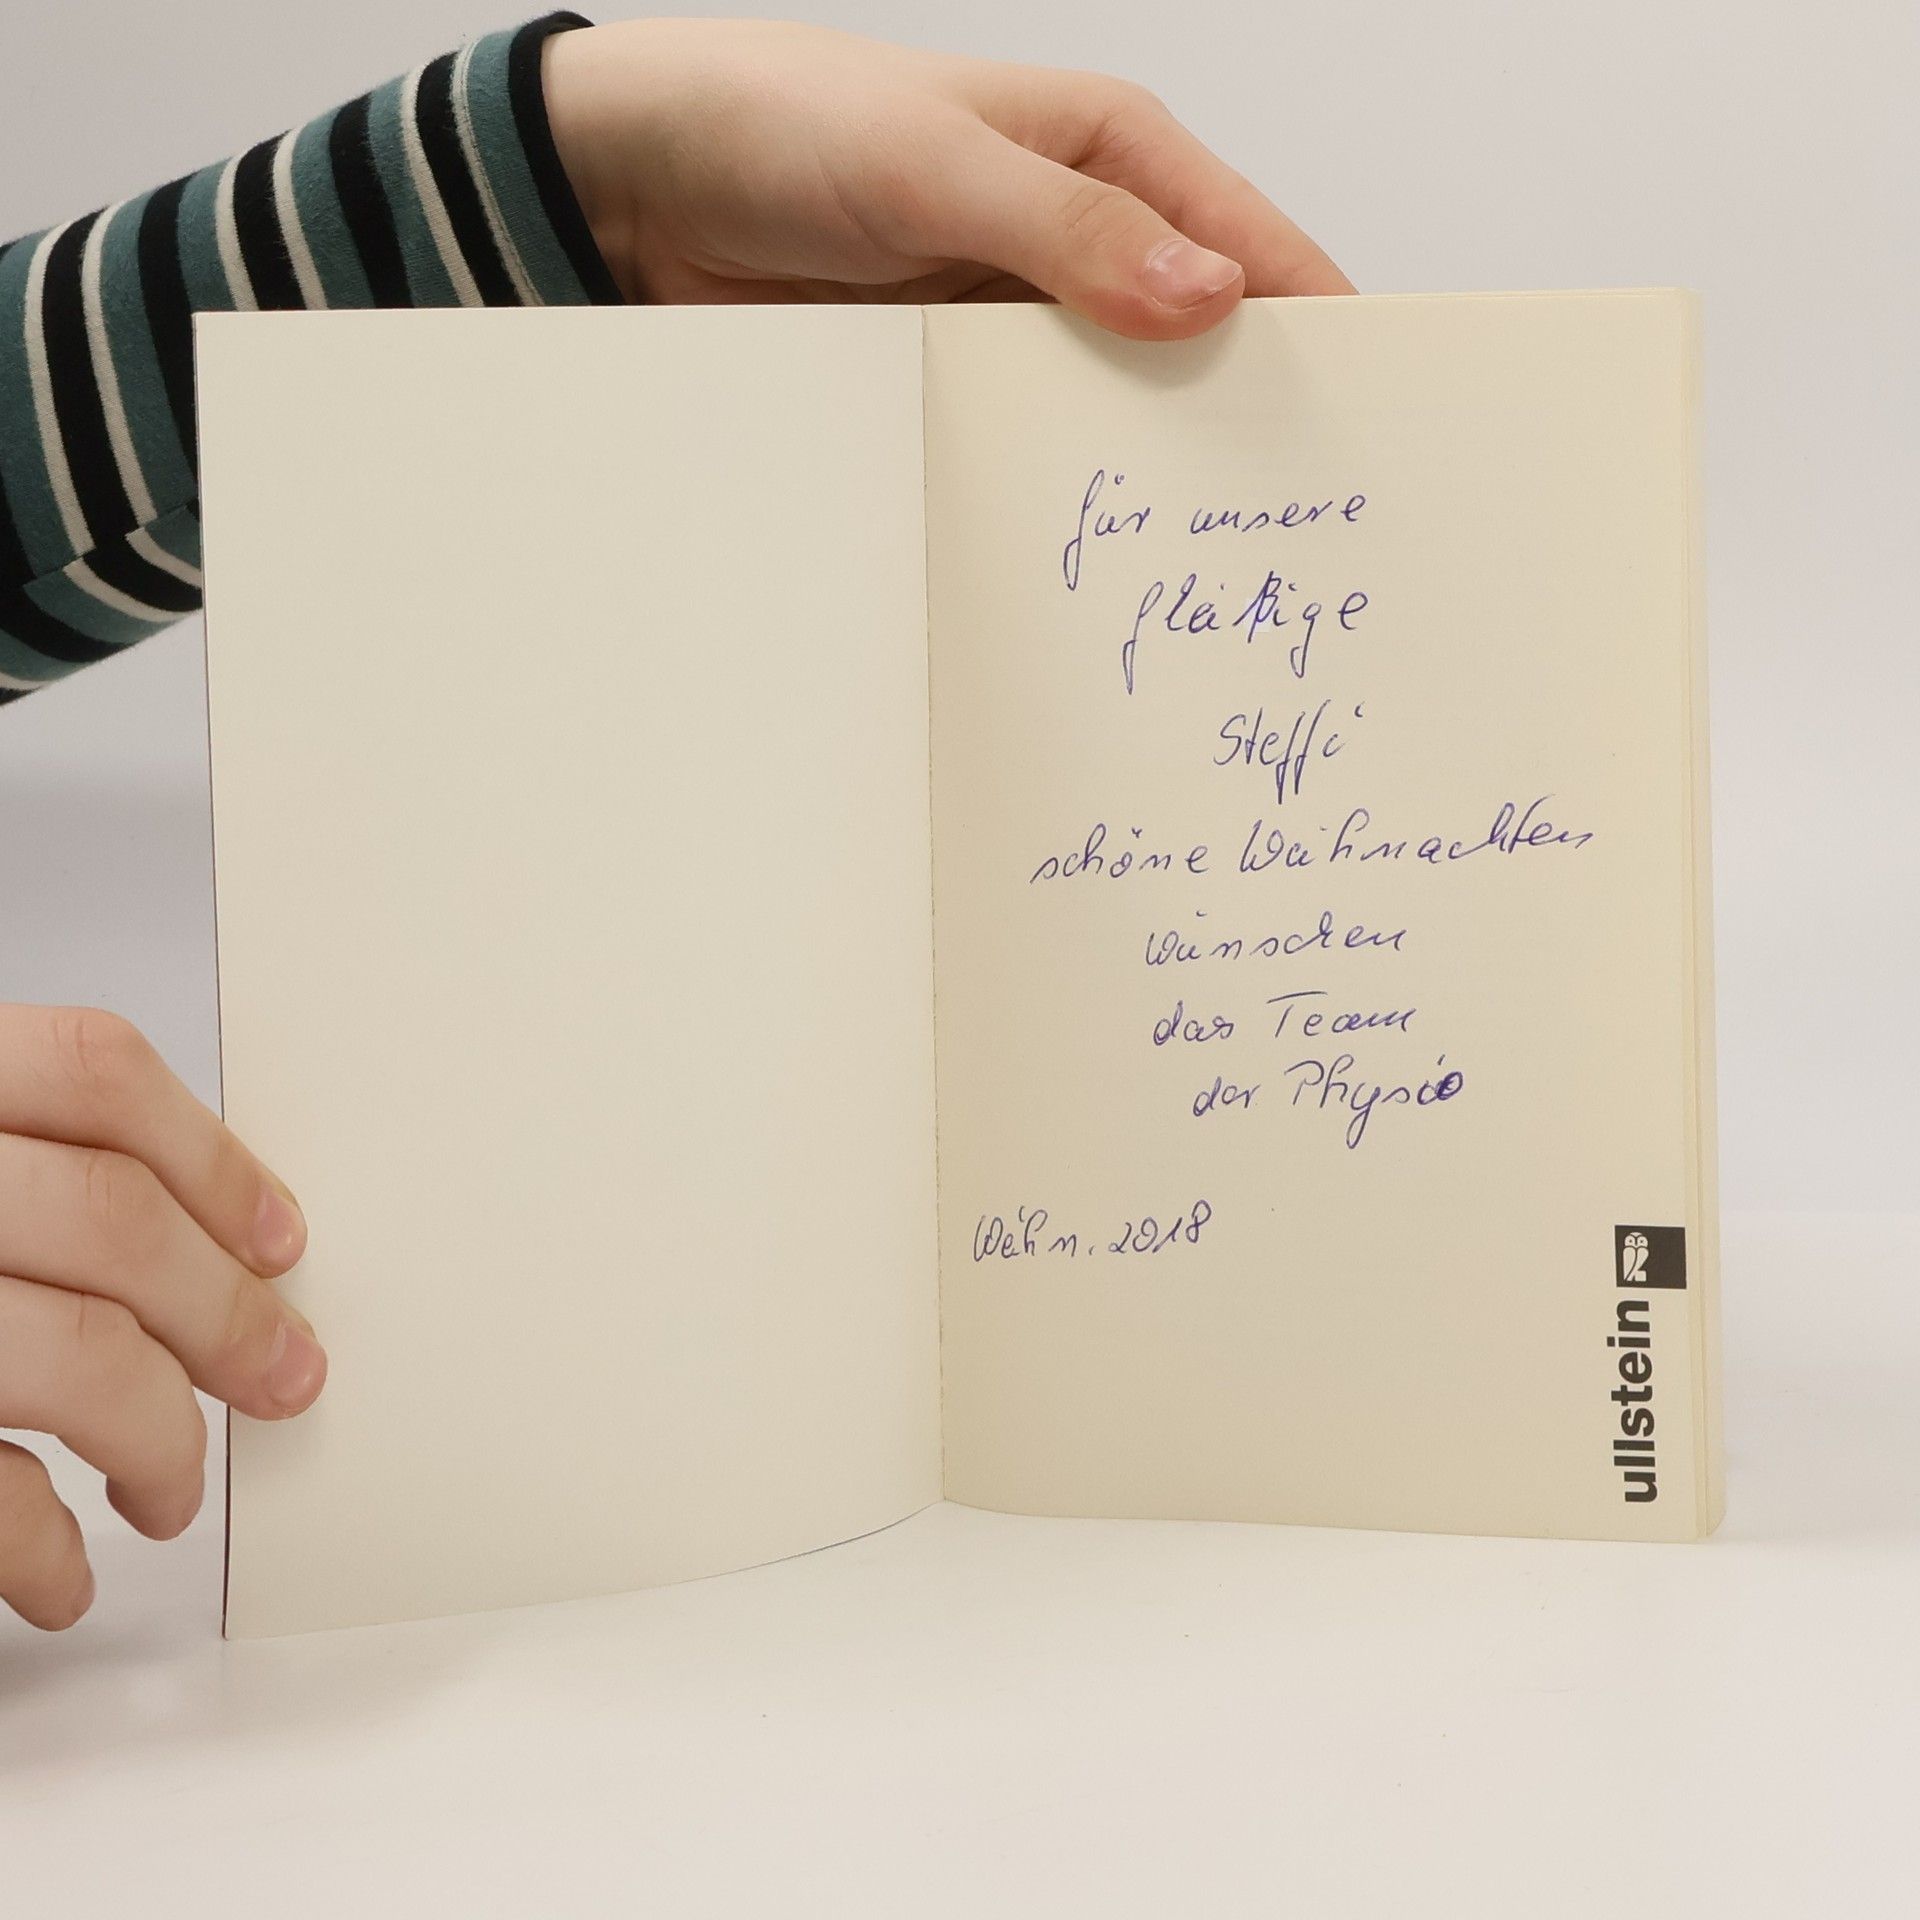 für unsere
fleißige
Steffi
schöne Weihnachten
wünschen
das Team
der Physio
Weihn. 2018
ullstein